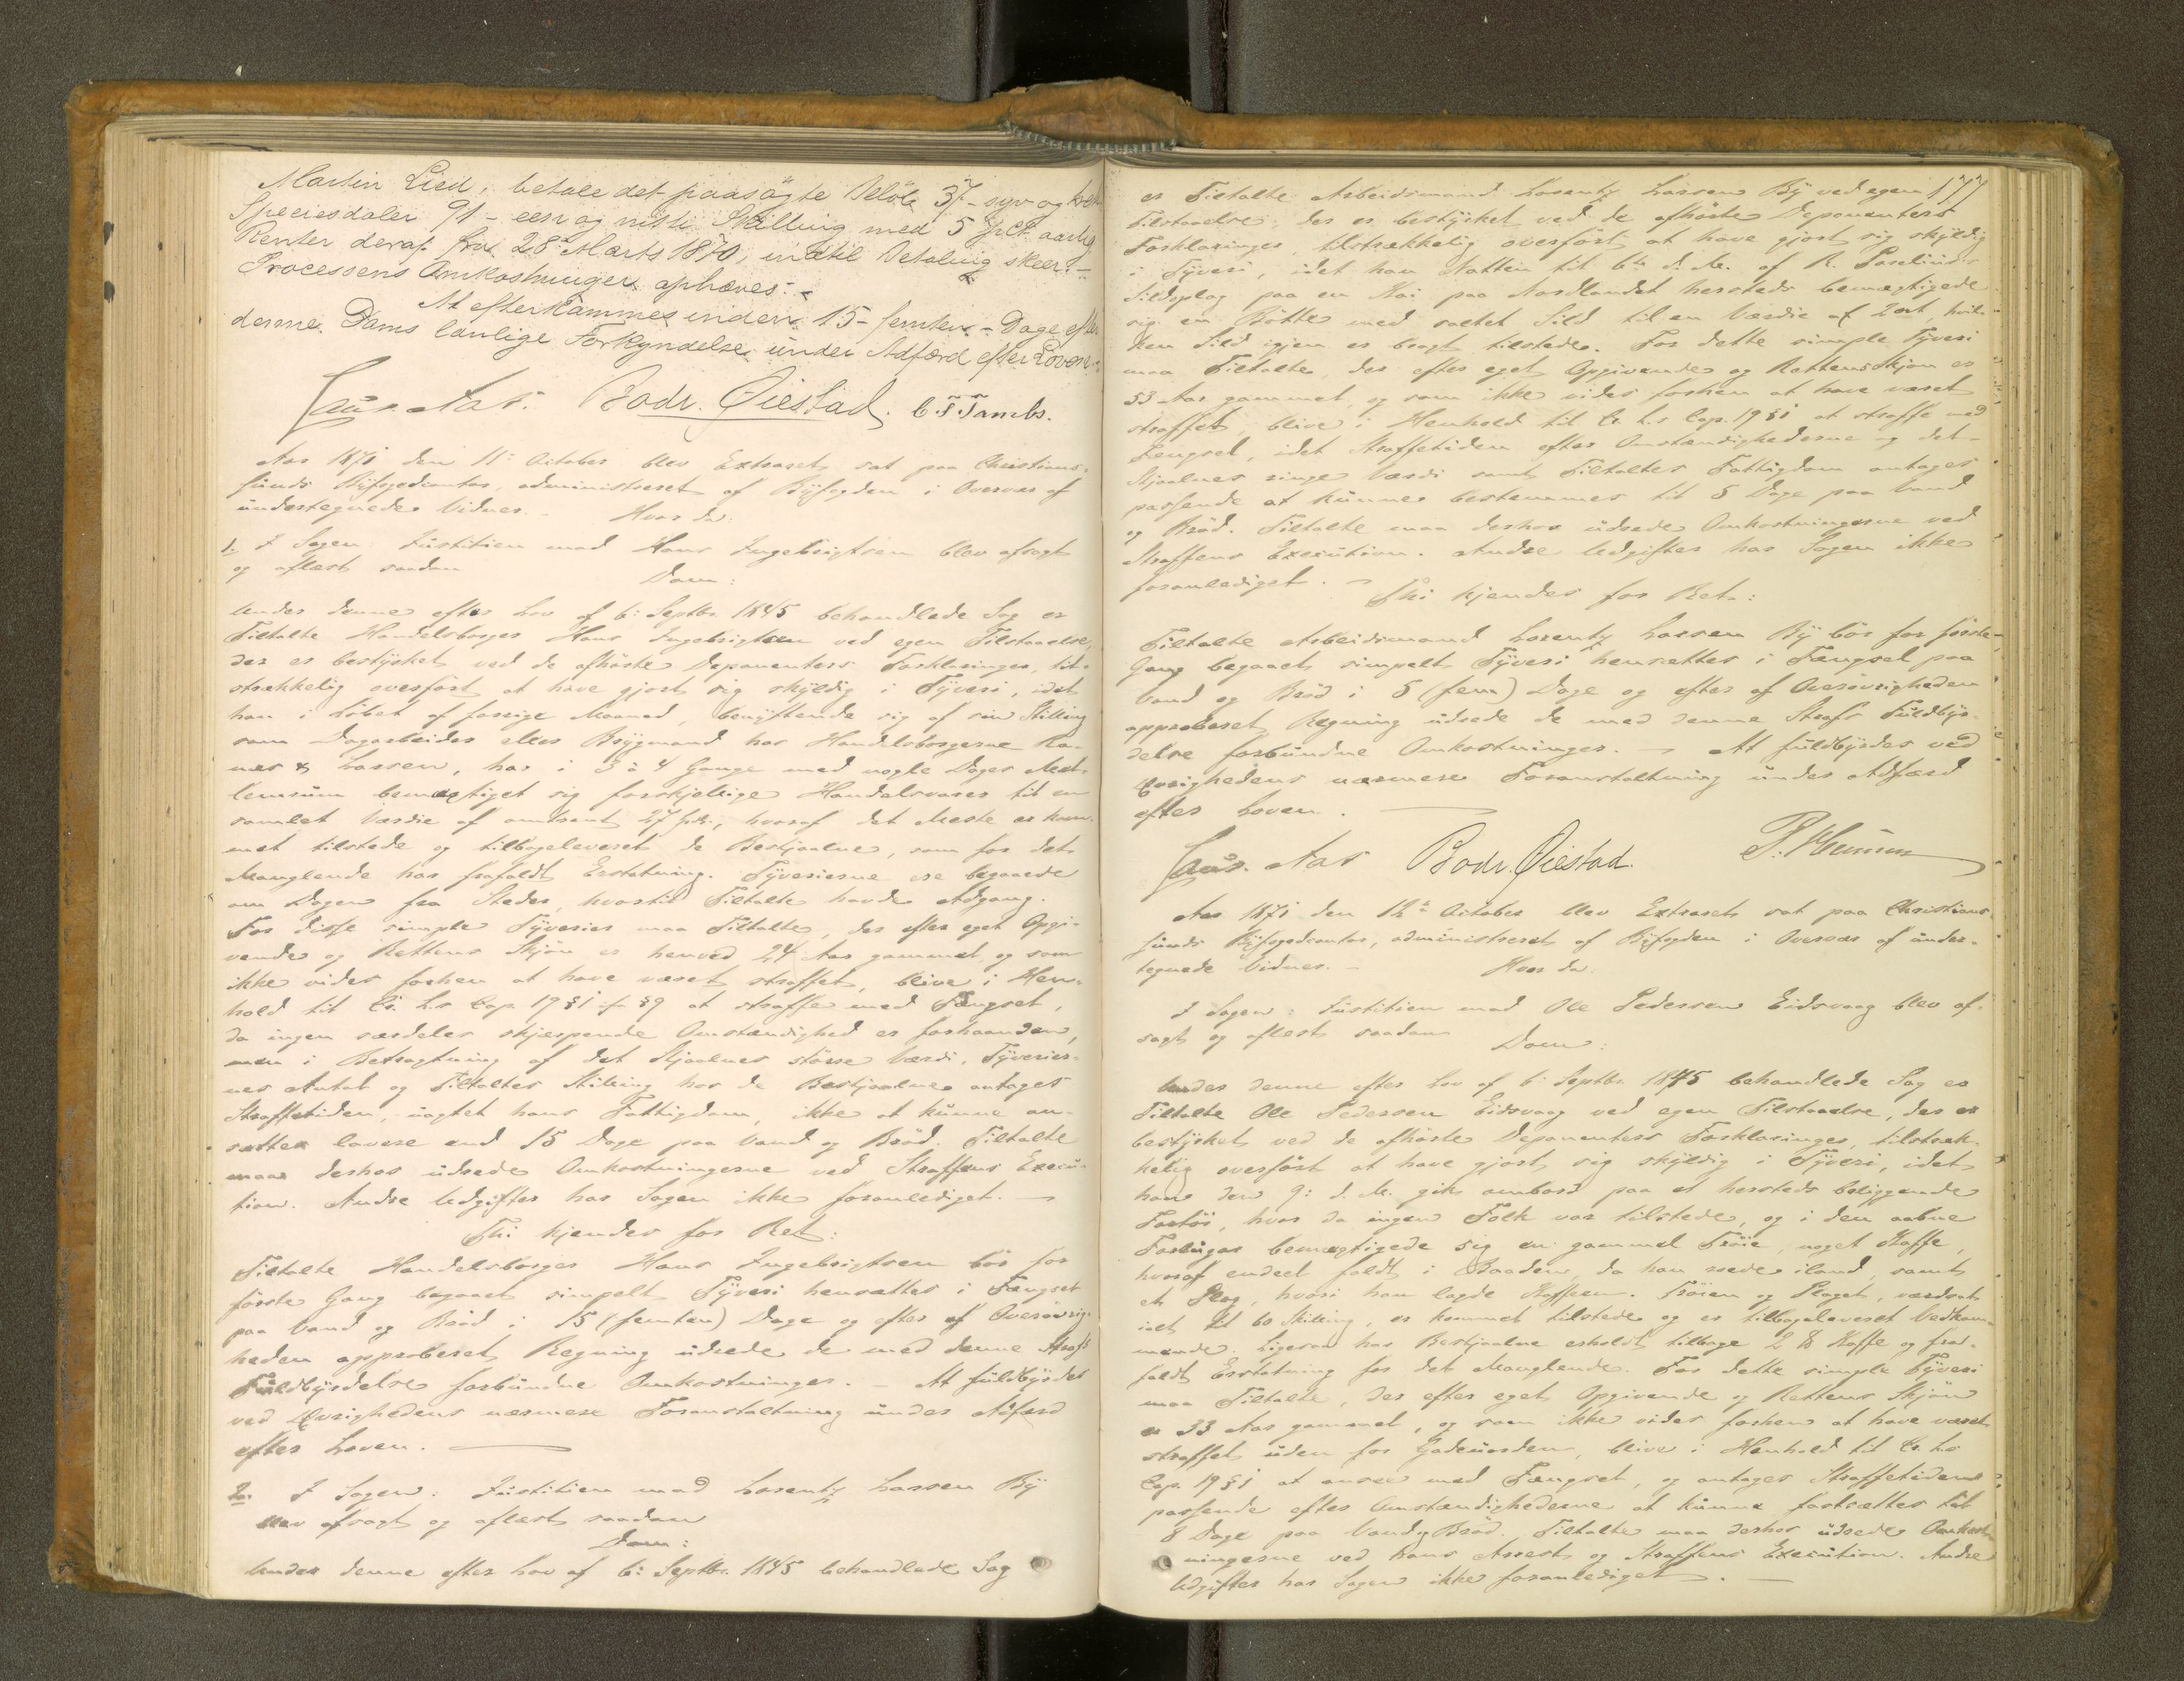 Martin Lied, betale det paasøgte Beløb 37 - syv og tredive
Speciesdaler 91 - een og nitti Skilling med 5 pCt aarlig
Renter deraf fra 28 Marts 1870, indtil Betaling skeer. -
Processens Omkostninger ophæves. -
At efterkommes inden 15 - femten - Dage efter
denne Doms lovlige Forkyndelse under Adfærd efter Loven. -
Aas. Bodr. Øiestad. C. F. Tambs.
Aar 1871 den 11te October blev Extraret sat paa Christian-
sunds Byfogedcontor, administreret af Byfogden i Overvær af
undertegnede Vidner. - Hvor da:
1. I Sagen: Justitien mod Hans Ingebrigtsen blev afsagt
og aflæst saadan
Dom:
Under denne efter Lov af 6: Septbr. 1845 behandlede Sag er
Tiltalte Handelsborger Hans Ingebrigtsen ved egen Tilstaaelse,
der er bestyrket ved de afhørte Deponenters Forklaringer, til-
strækkelig overført at have gjort sig skyldig i Tyveri, idet
han i Løbet af forrige Maaned, benyttende sig af sin Stilling
som Dagarbeider eller Brygmand hos Handelsborgerne
& Larsen, har i 3 à 4 Gange med nogle Dages Mel-
lemrum bemægtiget sig forskjellige Handelsvarer til en
samlet Værdie af omtrent 27 , hvoraf det Meste er kom-
met tilstede og tilbageleveret de Bestjaalne, som for det
Manglende har frafaldt Erstatning. Tyverierne ere begaaede
om Dagen fra Steder, hvortil Tiltalte havde Adgang.
For disse simple Tyverier maa Tiltalte, der efter eget Opgi-
vende og Rettens Skjøn er henved 24 Aar gammel og som
ikke vides forhen at have været straffet, blive i Hen-
hold til Cr. L.s Cap. 19 § 1 jfr § 9 at straffe med Fængsel,
da ingen særdeles skjærpende Omstændighed er forhaanden,
men i Betragtning af det Stjaalnes større Værdi, Tyverier-
nes Antal og Tiltaltes Stilling hos de Bestjaalne antages
Straffetiden, uagtet hans Fattigdom, ikke at kunne an-
sættes lavere end 15 Dage paa Vand og Brød. Tiltalte
maa derhos udrede Omkostningerne ved Straffens Execu-
tion. Andre Udgifter har Sagen ikke foranlediget. -
Thi kjendes for Ret:
Tiltalte Handelsborger Hans Ingebrigtsen bør for
første Gang begaaet simpelt Tyveri hensættes i Fængsel
paa Vand og Brød i 15 (femten) Dage og efter af Overøvrig-
heden approberet Regning udrede de med denne Strafs
Fuldbyrdelse forbundne Omkostninger. - At fuldbyrdes
ved Øvrighedens nærmere Foranstaltning under Adfærd
efter Loven.
2. I Sagen: Justitien mod Lorentz Larsen By
blev afsagt og aflæst saadan
Dom:
Under denne efter Lov af 6: Septbr. 1845 behandlede Sag
177
er Tiltalte Arbeidsmand Lorentz Larsen By ved egen
Tilstaaelse, der er bestyrket ved de afhørte Deponenters
Forklaringer, tilstrækkelig overført at have gjort sig skyldig
i Tyveri, idet han Natten til 6te d. M. af
Sildoplag paa en Kai paa Nordlandet hersteds bemægtigede
sig en Bøtte med saltet Sild til en Værdie af 2 ort, hvil-
ken Sild igjen er bragt tilstede. For dette simple Tyveri
maa Tiltalte, der efter eget Opgivende og Rettens Skjøn er
53 Aar gammel, og som ikke vides forhen at have været
straffet, blive i Henhold til Cr. L.s Cap. 19 § 1 at straffe med
Fængsel, idet Straffetiden efter Omstændighederne og det
Stjaalnes ringe Værdi samt Tiltaltes Fattigdom antages
passende at kunne bestemmes til 5 Dage paa Vand
og Brød. Tiltalte maa derhos udrede Omkostningerne ved
Straffens Execution. Andre Udgifter har Sagen ikke
foranlediget. -
Thi kjendes for Ret:
Tiltalte Arbeidsmand Lorentz Larsen By bør for første
Gang begaaet simpelt Tyveri hensættes i Fængsel paa
Vand og Brød i 5 (fem) Dage og efter af Overøvrigheden
approberet Regning udrede de med denne Strafs Fuldbyr-
delse forbundne Omkostninger. - At fuldbyrdes ved
Øvrighedens nærmere Foranstaltning under Adfærd
efter Loven.
Aas Bodr. Øiestad.
Aar 1871 den 12te October blev Extraret sat paa Christian-
sunds Byfogedcontor, administreret af Byfogden i Overvær af under-
tegnede Vidner. - Hvor da:
I Sagen: Justitien mod Ole Pedersen Eidsvaag blev af-
sagt og aflæst saadan
Dom:
Under denne efter Lov af 6: Septbr. 1845 behandlede Sag er
Tiltalte Ole Pedersen Eidsvaag ved egen Tilstaaelse, der er
bestyrket ved de afhørte Deponenters Forklaringer, tilstræk-
kelig overført at have gjort sig skyldig i Tyveri, idet
han den 9: d. M. gik ombord paa et hersteds beliggende
Fartøi, hvor da ingen Folk var tilstede, og i den aabne
Forlugar bemægtigede sig en gammel Trøie, noget Kaffe,
hvoraf endeel faldt i Baaden, da han roede iland, samt
et Plag, hvori han lagde Kaffeen. Trøien og Plaget, værdsat-
te til 60 Skilling, er kommet tilstede og er tilbageleveret Vedkom-
mende. Ligesaa har Bestjaalne erholdt tilbage 2 ℔ Kaffe og fra-
faldt Erstatning for det Manglende. For dette simple Tyveri
maa Tiltalte, der efter eget Opgivende og Rettens Skjøn
er 33 Aar gammel, og som ikke vides forhen at have været
straffet uden for Gadeuorden, blive i Henhold til Cr. L.s
Cap. 19 § 1 at ansee med Fængsel, og antages Straffetiden
passende efter Omstændighederne at kunne fastsættes til
8 Dage paa Vand og Brød. Tiltalte maa derhos udrede Omkost-
ningerne ved hans Arrest og Straffens Execution. Andre
Udgifter har Sagen ikke foranlediget. -